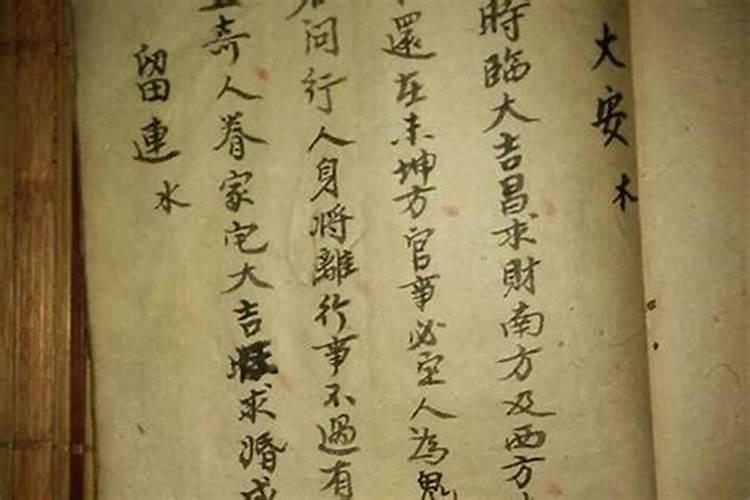 大安木
時臨大吉昌求財南方及西方
還在未坤方官事必空人為鬼
問行人身將離行事不過有
奇人眷家宅大吉 求婚成
留連水